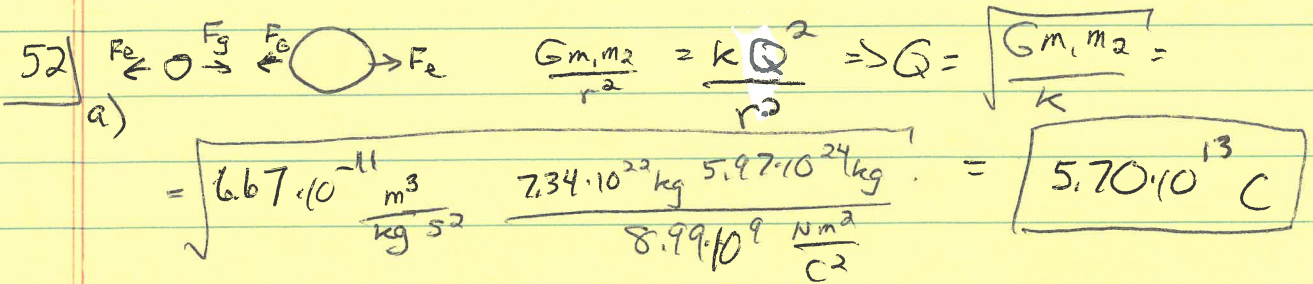 52) Fe Fg FG Fe Gm₁m₂/r² = kQ²/r² => Q = √(Gm₁m₂/k) =
a)
= √(6.67·10⁻¹¹ m³/(kg s²) (7.34·10²² kg 5.97·10²⁴ kg)/(8.99·10⁹ Nm²/C²)) = 5.70·10¹³ C